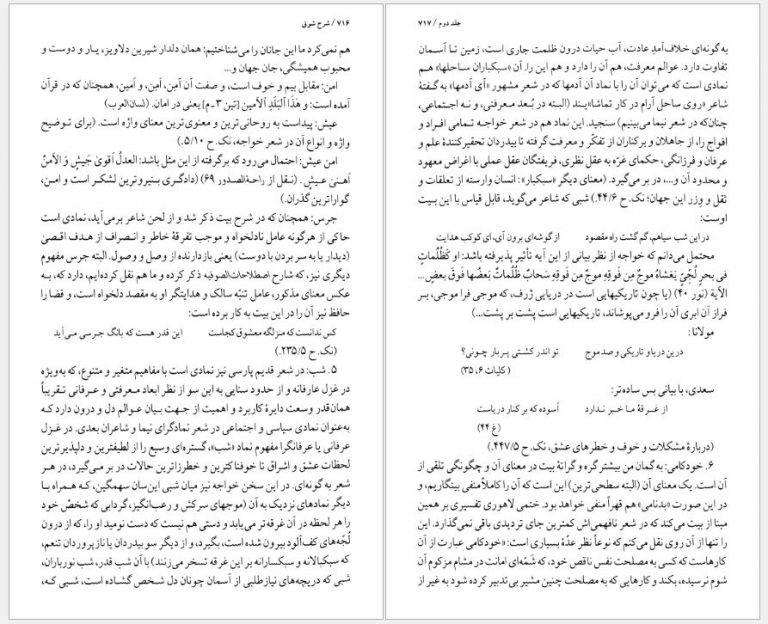 ۷۱۶ / شرح شوق
هم نمی‌کرد ما این جانان را می‌شناختیم: همان دلدار شیرین دلاویز، یار و دوست و
محبوب همیشگی، جان جهان و...
امن: مقابل بیم و خوف است، و صفت آن آمِن، اَمِن، و اَمین، همچنان که در قرآن
آمده است: و هٰذَا اَلْبَلَدِ اَلْاَمین [تین ۳ ـ م] یعنی در امان. (لسان‌العرب)
عیش: پیداست به روحانی‌ترین و معنوی‌ترین معنای واژه است. (برای توضیح
واژه و انواع آن در شعر خواجه، نک. ح ۵/۱۰.)
امن عیش: احتمال می‌رود که برگرفته از این مثل باشد: العدلُ اَقویٰ جَیشٍ وَ الاَمنُ
اَهنیٰ عَیشٍ. (نقل از راحةالصدور ۶۹) (دادگری بنیروترین لشکر است و امن،
گواراترین گذران.)
جرس: همچنان که در شرح بیت ذکر شد و از لحن شاعر برمی‌آید، نمادی است
حاکی از هرگونه عامل نادلخواه و موجب تفرقهٔ خاطر و انصراف از هدف اقصیٰ
(دیدار یا به سر بردن با دوست) یعنی بازدارنده از وصل و وصول. البته جرس مفهوم
دیگری نیز، که شارح اصطلاحات‌الصوفیه ذکر کرده و ما هم نقل کرده‌ایم، دارد که، به
عکس معنای مذکور، عامل تنبّه سالک و هدایتگر او به مقصد دلخواه است، و قضا را
حافظ نیز آن را در این بیت به کار برده است:
کس ندانست که منزلگه معشوق کجاست این قدر هست که بانگ جرسی می‌آید
(نک. ح ۲۳۵/۵.)
۵. شب: در شعر قدیم پارسی نیز نمادی است با مفاهیم متغیر و متنوع، که به‌ویژه
در غزل عارفانه و از حدود سنایی به این سو از نظر ابعاد معرفتی و عرفانی تقریباً
همان‌قدر وسعت دایرهٔ کاربرد و اهمیت از جهت بیان عوالم دل و درون دارد که
به‌عنوان نمادی سیاسی و اجتماعی در شعر نمادگرای نیما و شاعران بعدی. در غزل
عرفانی یا عرفانگرا مفهوم نماد «شب»، گستره‌ای وسیع را از لطیفترین و دلپذیرترین
لحظات عشق و اشراق تا خوفناکترین و خطرزاترین حالات در بر می‌گیرد، در هر
شعر به‌گونه‌ای. در این سخن خواجه نیز میان شبی این‌سان سهمگین، که همراه با
دیگر نمادهای نزدیک به آن (موجهای سرکش و رعب‌انگیز، گردابی که شخص خود
را هر لحظه در آن غرقه‌تر می‌یابد و دستی هم نیست که دست نومید او را، که از درون
لُجّه‌های کف‌آلود بیرون شده است، بگیرد، و از دیگر سو بیدردان یا نازپروردان تنعم،
که سبکبالانه و سبکسارانه بر این غرقه تسخر می‌زنند) با آن شب قدر، شب نورباران،
شبی که دریچه‌های نیازطلبی از آسمان چونان دل شخص گشاده است، شبی که،
جلد دوم / ۷۱۷
به گونه‌ای خلاف‌آمدِ عادت، آب حیات درون ظلمت جاری است، زمین تا آسمان
تفاوت دارد. عوالم معرفت، هم آن را دارد و هم این را. آن «سبکباران ساحلها» هم
نمادی است که می‌توان آن را با نماد آن آدمها که در شعر مشهور «آی آدمها» به گفتهٔ
شاعر «روی ساحل آرام در کار تماشا»یند (البته در بُعد معرفتی، و نه اجتماعی،
چنان‌که در شعر نیما می‌بینیم) سنجید. این نماد هم در شعر خواجه تمامی افراد و
افواج را، از جاهلان و برکناران از تفکّر و معرفت گرفته تا بیدردان تحقیرکنندهٔ علم و
عرفان و فرزانگی، حکمای غرّه به عقل نظری، فریفتگان عقل عملی با اغراض معهود
و محدود آن و...، در بر می‌گیرد. (معنای دیگر «سبکبار»: انسان وارسته از تعلقات و
ثقل و وِزر این جهان؛ نک. ح ۴۴/۶.) شبی که شاعر می‌گوید، قابل قیاس با این بیت
اوست:
در این شب سیاهم، گم گشت راه مقصود از گوشه‌ای برون آی، ای کوکب هدایت
محتمل می‌دانم که خواجه از نظر بیانی از این آیه تأثیر پذیرفته باشد: او کَظُلُماتٍ
فی بحرٍ لُجّیٍ یَغشاهُ موجٌ مِن فَوقِهِ موجٌ مِن فَوقِهِ سَحابٌ ظُلُماتٌ بَعضُها فَوقَ بعضٍ...
الآیة (نور ۴۰) (یا چون تاریکیهایی است در دریایی ژرف، که موجی فرا موجی، بر
فراز آن ابری آن را فرو می‌پوشاند، تاریکیهایی است پشت بر پشت...)
مولانا:
درین دریا و تاریکی و صد موج تو اندر کشتی پربار چونی؟
(کلیات ۶، ۳۵)
سعدی، با بیانی بس ساده‌تر:
از غرقهٔ ما خبر ندارد آسوده که بر کنار دریاست
(غ ۴۴)
(دربارهٔ مشکلات و خوف و خطرهای عشق، نک. ح ۴۴۷/۵.)
۶. خودکامی: به گمان من بیشتر گره و گرانهٔ بیت در معنای آن و چگونگی تلقی از
آن است. یک معنای آن (البته سطحی‌ترین) این است که آن را کاملاً منفی بینگاریم، و
در این صورت «بدنامی» هم قهراً منفی خواهد بود. ختمی لاهوری تفسیری بر همین
مبنا از بیت می‌کند که در شعر نافهمی‌اش کمترین جای تردیدی باقی نمی‌گذارد. این
را تنها از آن روی نقل می‌کنم که نوعاً نظر عدّهٔ بسیاری است: «خودکامی عبارت از آن
کارهاست که کسی به مصلحت نفس ناقص خود، که شمّه‌ای امانت در مشام مزکوم آن
شوم نرسیده، بکند و کارهایی که به مصلحت چنین مشیر بی‌تدبیر کرده شود به غیر از